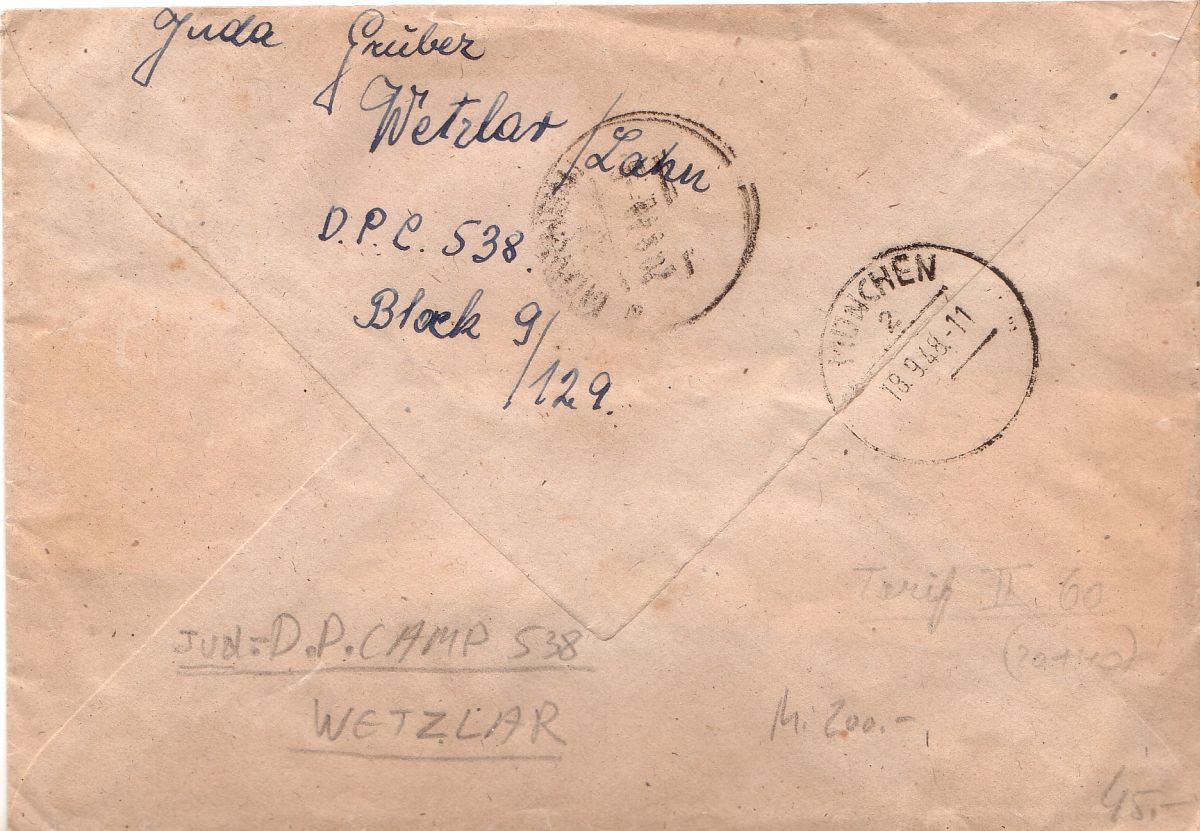 Juda Gruber
Wetzlar /Lahn
D.P.C. 538.
Block 9/
/129.
MÜNCHEN
2
18.9.48.-11
Tarif II 60
JUD.=D.P. CAMP 538
WETZLAR
Mi 200.-
45.-